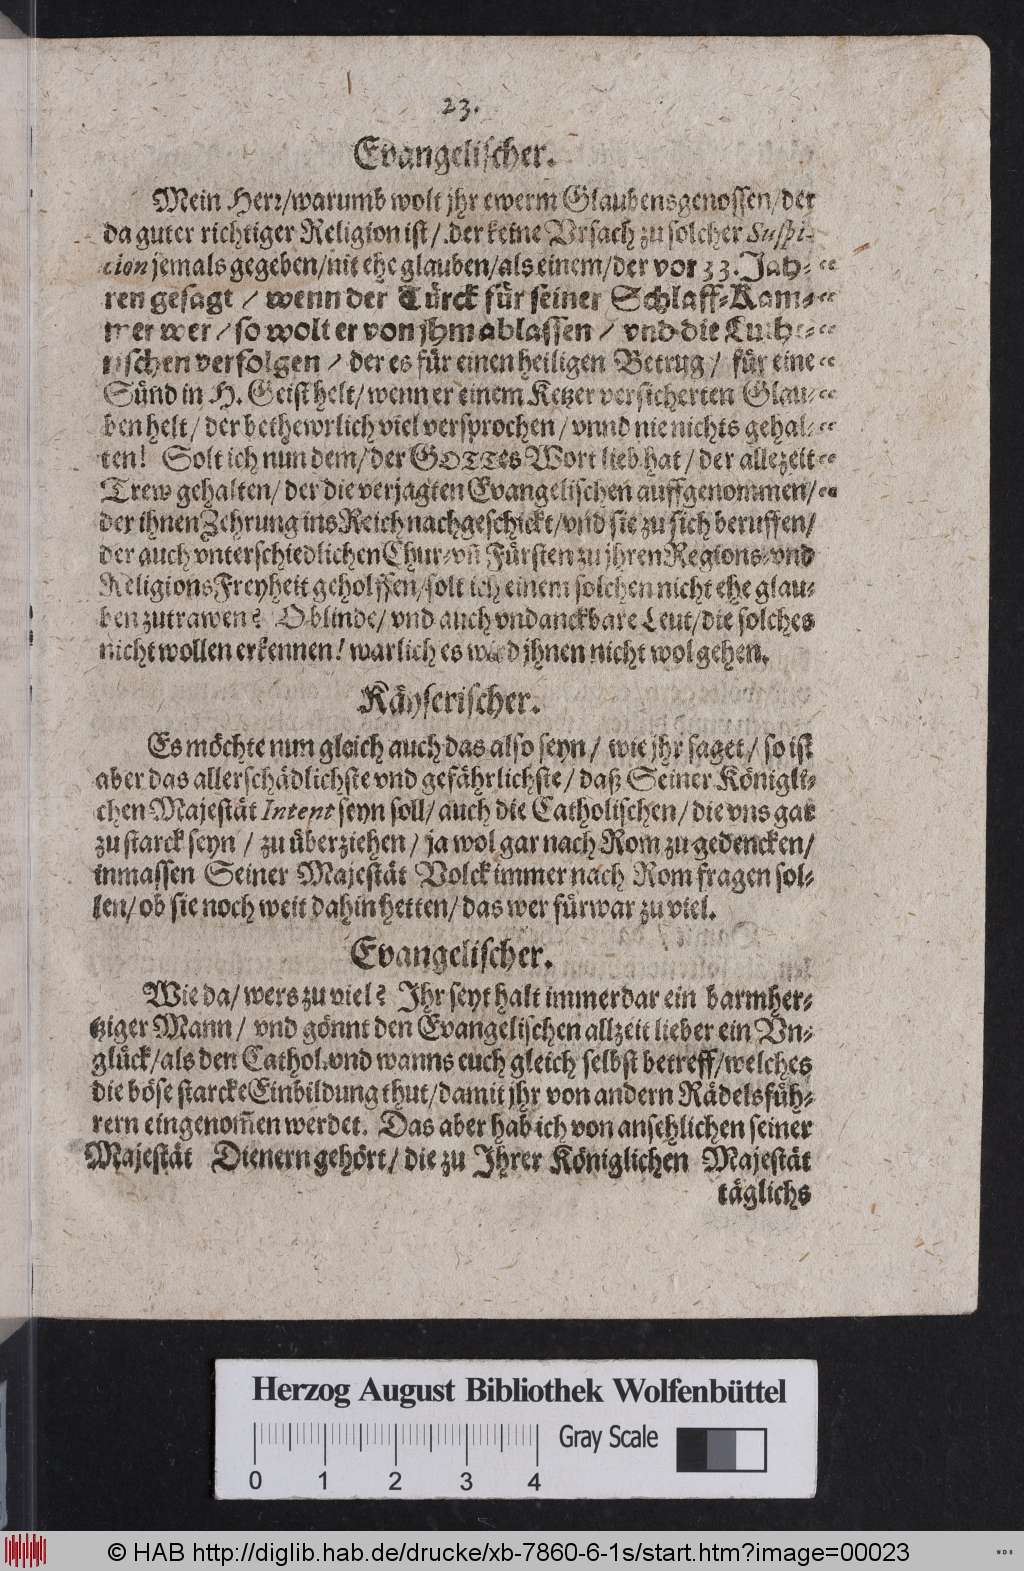 23.
Evangelischer.
Mein Herr/warumb wolt jhr ewerm Glaubensgenossen/der
da guter richtiger Religion ist/ der keine Vrsach zu solcher Suspi-
cion jemals gegeben/nit ehe glauben/als einem/der vor 33. Jah-“
ren gesagt / wenn der Türck für seiner Schlaff-Kam-“
mer wer / so wolt er von jhm ablassen / vnd die Luthe-“
rischen verfolgen / der es für einen heiligen Betrug / für eine“
Sünd in H. Geist helt/wenn er einem Ketzer versicherten Glau-“
ben helt/ der bethewrlich viel versprochen / vnnd nie nichts gehal-“
ten! Solt ich nun dem/der GOTTes Wort lieb hat/ der allezeit“
Trew gehalten/ der die verjagten Evangelischen auffgenommen/“
der ihnen Zehrung ins Reich nachgeschickt/vnd sie zu sich beruffen/
der auch vnterschiedlichen Chur-vñ Fürsten zu jhren Regions-vnd
ReligionsFreyheit geholffen/solt ich einem solchen nicht ehe glau-
ben zutrawen? O blinde/ vnd auch vndanckbare Leut/die solches
nicht wollen erkennen! warlich es wird jhnen nicht wol gehen.
Käyserischer.
Es möchte nun gleich auch das also seyn / wie jhr saget / so ist
aber das allerschädlichste vnd gefährlichste/ daß Seiner Königli-
chen Majestät Intent seyn soll/ auch die Catholischen/ die vns gar
zu starck seyn / zu überziehen / ja wol gar nach Rom zu gedencken/
inmassen Seiner Majestät Volck immer nach Rom fragen sol-
len/ ob sie noch weit dahin hetten/ das wer fürwar zu viel.
Evangelischer.
Wie da/ wers zu viel? Ihr seyt halt immerdar ein barmher-
tziger Mann / vnd gönnt den Evangelischen allzeit lieber ein Vn-
glück/als den Cathol. vnd wanns euch gleich selbst betreff/welches
die böse starcke Einbildung thut/damit jhr von andern Rädelsfüh-
rern eingenom̃en werdet. Das aber hab ich von ansehlichen seiner
Majestät Dienern gehört/ die zu Ihrer Königlichen Majestät
täglichs
Herzog August Bibliothek Wolfenbüttel
Gray Scale
0 1 2 3 4
© HAB http://diglib.hab.de/drucke/xb-7860-6-1s/start.htm?image=00023